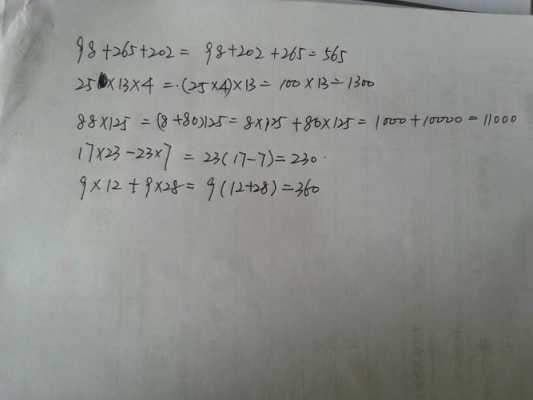 98+265+202= 98+202+265=565
25×13×4=(25×4)×13=100×13=1300
88×125=(8+80)125=8×125+80×125=1000+10000=11000
17×23-23×7=23(17-7)=230
9×12+9×28=9(12+28)=360